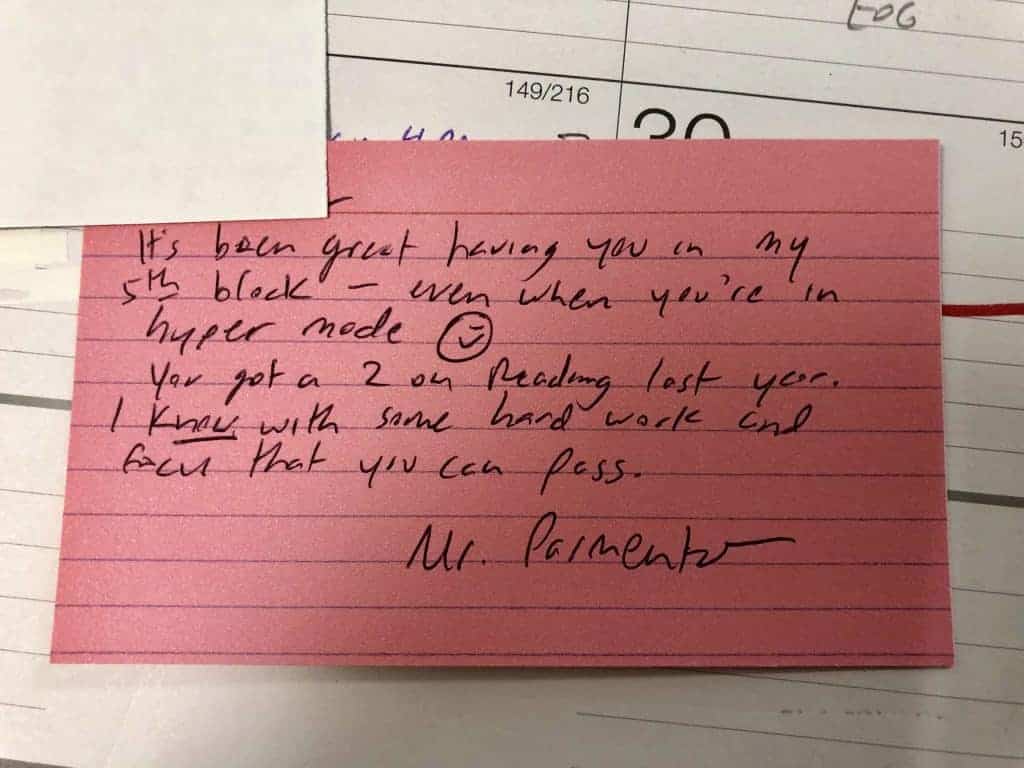 EOG
149/216
30
15
It's been great having you in my
5th block – even when you're in
hyper mode
You got a 2 on Reading last year.
I know with some hard work and
focus that you can pass.
Mr. Parmenter